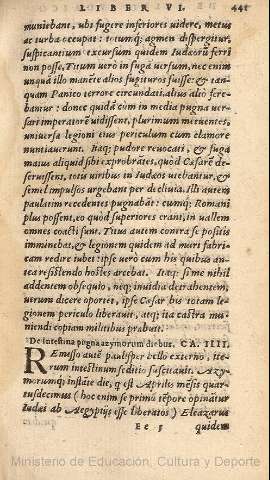 LIBER VI. 441
muniebant, ubi fugere inferiores uidere, metus
ac turba occupat: totumq́; agmen dispergitur,
suspicantium excursum quidem Iudæorũ ferri
non posse, Titum uerò in fuga uersum, nec enim
unquã illo manẽte alios fugituros fuisse: & tan-
quam Panico terrore circundati, alius aliò fere
batur: donec quidã cùm in media pugna uer-
sari imperatorẽ uidissent, plurimum metuentes,
uniuersæ legioni eius periculum cum clamore
nuntiauerunt. Itaq; pudore reuocati, & fuga
maius aliquid sibi exprobrãtes, quòd Cæsarẽ de-
seruissent, totis uiribus in Iudæos utebantur, &
semel impulsos urgebant per decliuia. Illi autem
paulatim recedentes pugnabãt: cumq́; Romani
plus possent, eo quòd superiores erant, in uallem
omnes coacti sunt. Titus autem contra se positis
imminebat, & legionem quidem ad muri fabri-
cam redire iubet: ipse uerò cum his quibus an-
tea resistendo hostes arcebat. Itaq; si me nihil
addentem obsequio, neq; inuidia detrahentem,
uerum dicere oportet, ipse Cæsar bis totam le-
gionem periculo liberauit, atq; ita castra mu-
niendi copiam militibus præbuit.
De intestina pugna azymorum diebus. CA. IIII.
REmisso autẽ paulisper bello externo, ite-
rum intestinum seditio suscitauit. Azy-
morumq́; instãte die, qui est Aprilis mẽsis quar-
tusdecimus (hoc enim se primũ tẽpore opinãtur
Iudæi ab Aegyptijs esse liberatos) Eleazarus
Ee 5 quidem
Ministerio de Educación, Cultura y Deporte